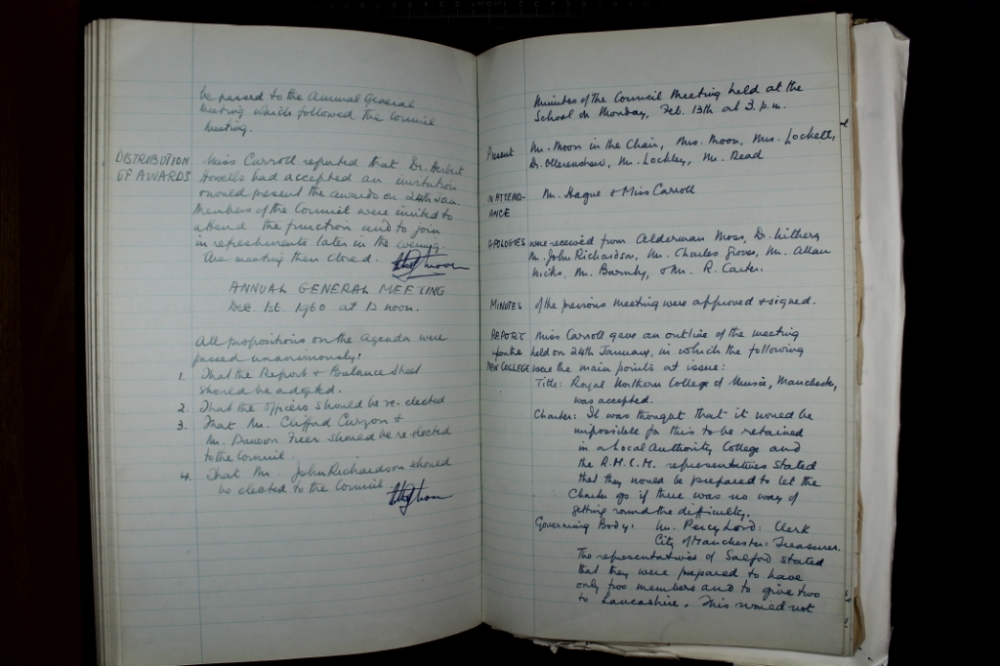 be passed to the Annual General
Meeting which followed the Council
Meeting.
DISTRIBUTION OF AWARDS
Miss Carroll reported that Dr. Herbert
Howells had accepted an invitation
to present the awards on 24th Jan.
Members of the Council were invited to
attend the function and to join
in refreshments later in the evening.
The meeting then closed.
ANNUAL GENERAL MEETING
Dec. 1st. 1960 at 12 noon.
All propositions on the Agenda were
passed unanimously:
1. That the Report & Balance Sheet
should be adopted.
2. That the officers should be re-elected
3. That Mr. Clifford Curzon &
Mr. Dawson Freer should be re-elected
to the Council.
4. That Mr. John Richardson should
be elected to the Council.
Minutes of the Council Meeting held at the
School on Monday, Feb. 13th at 3. p.m.
Present Mr. Moon in the Chair, Mrs. Moon, Mrs. Lockett,
Dr. Ollerenshaw, Mr. Lockley, Mr. Read
IN ATTENDANCE Mr. Hague & Miss Carroll
APOLOGIES were received from Alderman Moss, D.
Mr. John Richardson, Mr. Charles Groves, Mr. Allan
Hicks, Mr. Barnby, & Mr. R. Carter.
MINUTES of the previous meeting were approved & signed.
REPORT upon the NEW COLLEGE
Miss Carroll gave an outline of the meeting
held on 24th January, in which the following
were the main points at issue:
Title: Royal Northern College of Music, Manchester,
was accepted.
Charter: It was thought that it would be
impossible for this to be retained
in a Local Authority College and
the R.M.C.M. representatives stated
that they would be prepared to let the
Charter go if there was no way of
getting round the difficulty.
Governing Body: Mr. Percy Lord: Clerk
City of Manchester: Treasurer.
The representatives of Salford stated
that they were prepared to have
only two members and to give two
to Lancashire. This would not